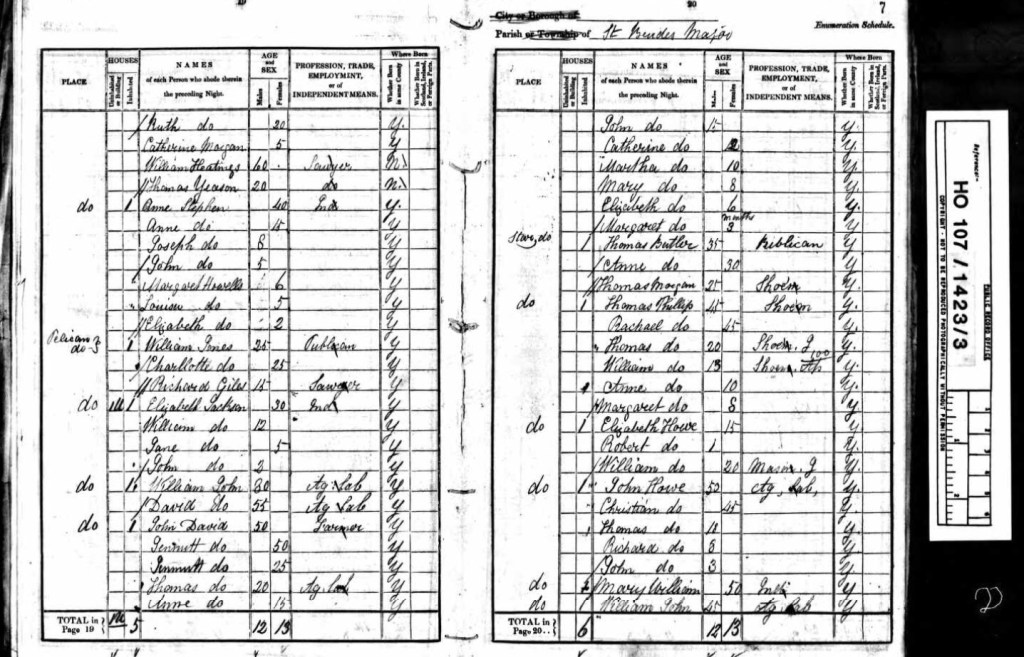 19
HOUSES AGE and SEX PROFESSION, TRADE, EMPLOYMENT, or of INDEPENDENT MEANS. Where Born
PLACE Uninhabited or Building Inhabited NAMES of each Person who abode therein the preceding Night. Males Females Whether Born in same County Whether Born in Scotland, Ireland, or Foreign Parts.
Ruth do 20 Y
Catherine Morgan 5 Y
William 60 Sawyer N
Thomas Yeason 20 do N
do 1 Anne Stephen 40 Ind Y
Anne do 15 Y
Joseph do 8 Y
John do 5 Y
Margaret Howells 6 Y
Louisa do 5 Y
Elizabeth do 2 Y
Pelican do 1 William Jones 25 Publican Y
Charllotte do 25 Y
Richard Giles 15 Sawyer Y
do 1 Elizabeth Jackson 30 Ind Y
William do 12 Y
Jane do 5 Y
John do 2 Y
do 1 William John 80 Ag Lab Y
David do 55 Ag Lab Y
do 1 John David 50 Farmer Y
do 50 Y
do 25 Y
Thomas do 20 Ag. Lab Y
Anne do 15 Y
TOTAL in Page 19 5 12 13
20
7
City or Borough of
Parish or Township of St Brides Major
Enumeration Schedule.
HOUSES AGE and SEX PROFESSION, TRADE, EMPLOYMENT, or of INDEPENDENT MEANS. Where Born
PLACE Uninhabited or Building Inhabited NAMES of each Person who abode therein the preceding Night. Males Females Whether Born in same County Whether Born in Scotland, Ireland, or Foreign Parts.
John do 15 Y
Catherine do 12 Y
Martha do 10 Y
Mary do 8 Y
Elizabeth do 6 Y
Margaret do months 3 Y
Star, do 1 Thomas Butler 35 Publican Y
Anne do 30 Y
Thomas Morgan 25 Shoem Y
do 1 Thomas Phillip 45 Shoem Y
Rachael do 45 Y
Thomas do 20 Shoem. J Y
William do 13 Shoem. Ap Y
Anne do 10 Y
Margaret do 8 Y
do 1 Elizabeth Howe 15 Y
Robert do 1 Y
William do 20 Mason. J Y
do 1 John Howe 50 Ag, Lab, Y
Christian do 45 Y
Thomas do Y
Richard do 8 Y
John do 3 Y
do 1 Mary William 50 Ind Y
do 1 William John 45 Ag Lab Y
TOTAL in Page 20 6 12 13
Reference:-
HO 107/1423/3
PUBLIC RECORD OFFICE
COPYRIGHT - NOT TO BE REPRODUCED PHOTOGRAPHICALLY WITHOUT PERMISSION